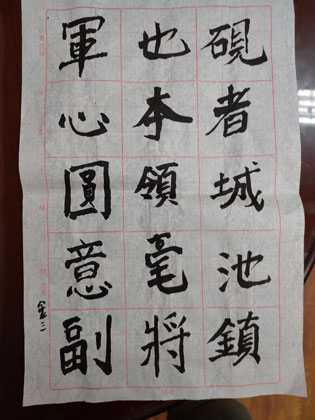 硯者城池鎖
也本領毫將
軍心圓意副
金三